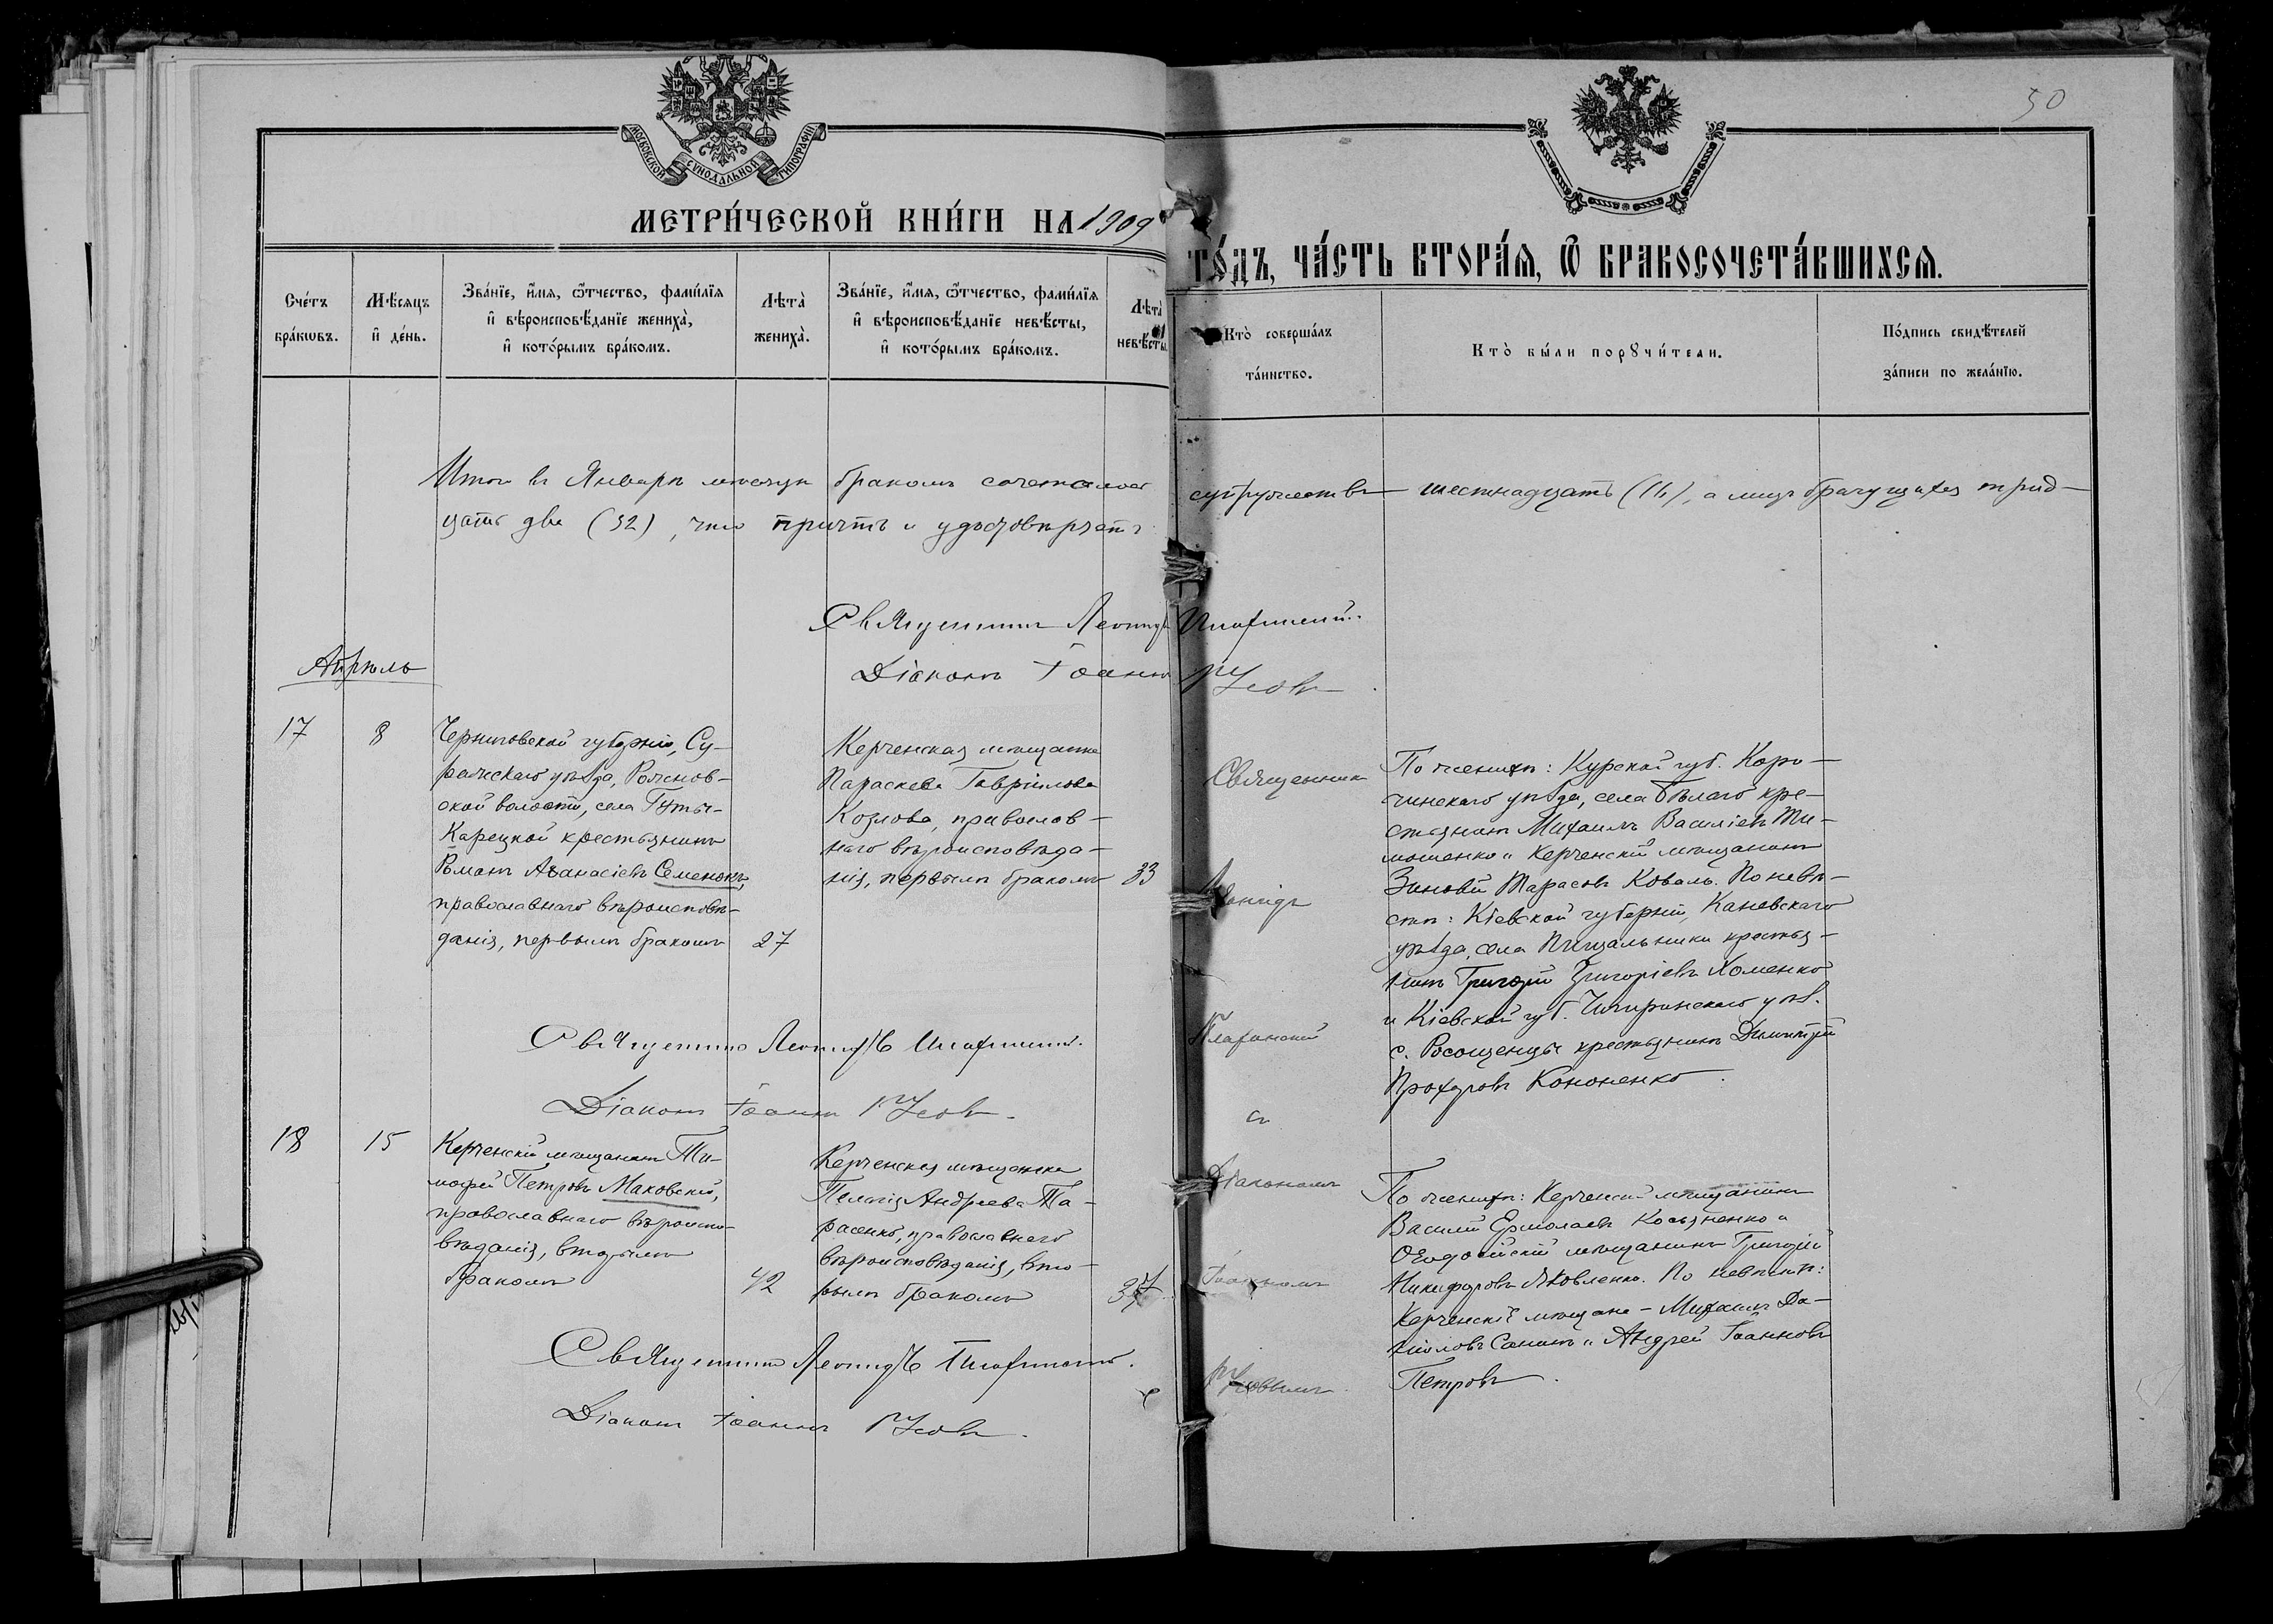 50
МОСКОВСКОЙ СѴНОДАЛЬНОЙ ТИПОГРАФІИ
МЕТРИ́ЧЕСКОЙ КНИ́ГИ НА 1909
ГО́ДЪ, ЧА́СТЬ ВТОРА́Ѧ, Ѿ БРАКОСОЧЕТА́ВШИХСѦ.
Сче́тъ бра́кѡвъ.
Мѣ́сяцъ и҆ де́нь.
Зва́нїе, и҆́мѧ, ѻ҆́тчество, фами́лїѧ
и҆ вѣроисповѣ́данїе жениха̀,
и҆ кото́рымъ бра́комъ.
Лѣта̀ жениха̀.
Зва́нїе, и҆́мѧ, ѻ҆́тчество, фами́лїѧ
и҆ вѣроисповѣ́данїе невѣ́сты,
и҆ кото́рымъ бра́комъ.
Лѣта̀ невѣ́сты.
Кто̀ соверша́лъ
та́инство.
Кто̀ бы́ли порꙋчи́тели.
По́дпись свидѣ́телей
за́писи по жела́нїю.
Итого въ Январѣ мѣсяцѣ бракомъ сочеталось супружествъ шестнадцать (16), а лицъ брачущихся трид-
цать два (32), что причтъ и удостовѣряетъ
Священникъ Леонидъ
Діаконъ Іоаннъ Усовъ
Апрѣль
17
8
Черниговской губерніи, Су-
ражскаго уѣзда,
ской волости, села Гуты-
Карецкой крестьянинъ
Романъ Аѳанасіевъ Семенокъ,
православнаго вѣроисповѣ-
данія, первымъ бракомъ
27
Керченская мѣщанка
Параскева Гавріилова
Козлова, православ-
наго вѣроисповѣда-
нія, первымъ бракомъ
33
Священникъ
Леонидъ
По женихѣ: Курской губ. Коро-
чинскаго уѣзда, села Бѣлаго кре-
стьянинъ Михаилъ Василіевъ Ти-
мошенко и Керченскій мѣщанинъ
Зиновій Тарасовъ Коваль. По невѣ-
стѣ: Кіевской губерніи, Каневскаго
уѣзда, села Пищальники крестья-
нинъ Григорій Григоріевъ Хоменко
и Кіевской губ. Чигиринскаго уѣз.
с. Росошенцы крестьянинъ Димитрій
Прохоровъ Кононенко.
Священникъ Леонидъ
Діаконъ Іоаннъ Усовъ
съ
18
15
Керченскій мѣщанинъ Ти-
мофей Петровъ Маковскій,
православнаго вѣроиспо-
вѣданія, вторымъ
бракомъ
42
Керченская мѣщанка
Пелагія Андреева Та-
расенко, православнаго
вѣроисповѣданія, вто-
рымъ бракомъ
37
Діакономъ
Іоанномъ
Усовымъ.
По женихѣ: Керченскій мѣщанинъ
Василій Ермолаевъ Косьяненко и
Ѳеодосійскій мѣщанинъ Григорій
Никифоровъ Яковленко. По невѣстѣ:
Керченскіе мѣщане - Михаилъ Да-
ніиловъ Санинъ и Андрей Іоанновъ
Петровъ.
Священникъ Леонидъ
Діаконъ Іоаннъ Усовъ.